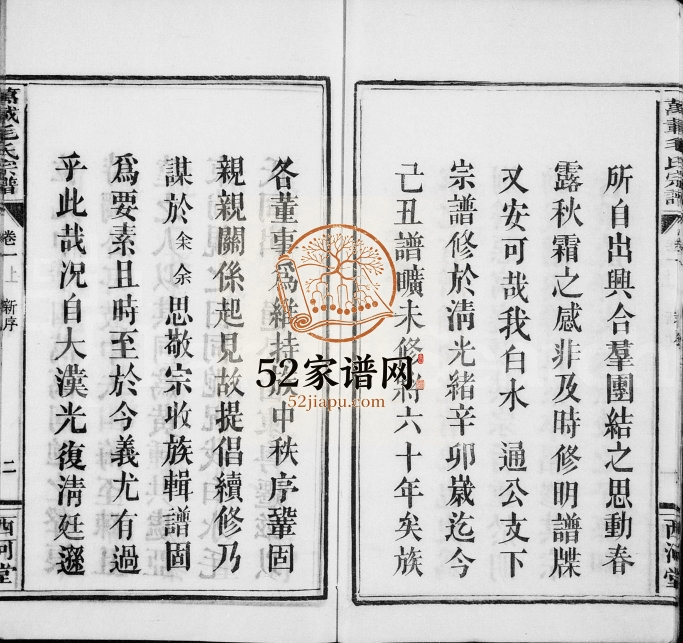 萬載毛氏宗譜
所自出興合羣團結之思動春
露秋霜之感非及時修明譜牒
又安可哉我白水 通公支下
宗譜修於清光緒辛卯嵗迄今
己丑譜曠未修將六十年矣族
西河堂
各董事爲維持族中秩序鞏固
親親關係起見故提倡續修乃
謀於余余思敬宗收族輯譜固
爲要素且時至於今義尤有過
乎此哉况自大漢光復清廷遜
萬載毛氏宗譜
卷一上 新序
二
西河堂
52家谱网
52jiapu.com